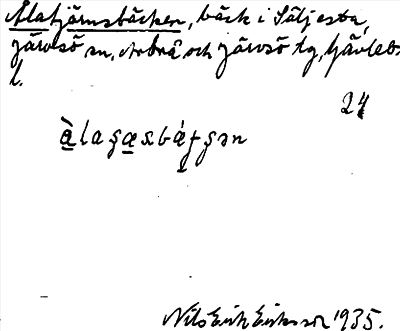 Alatjärnsbäcken, bäck i Säljesta,
järvsö sn, Arbrå och järvsö tg, Gävleb.
l.
24
Nils Erik Eriksson 1935.